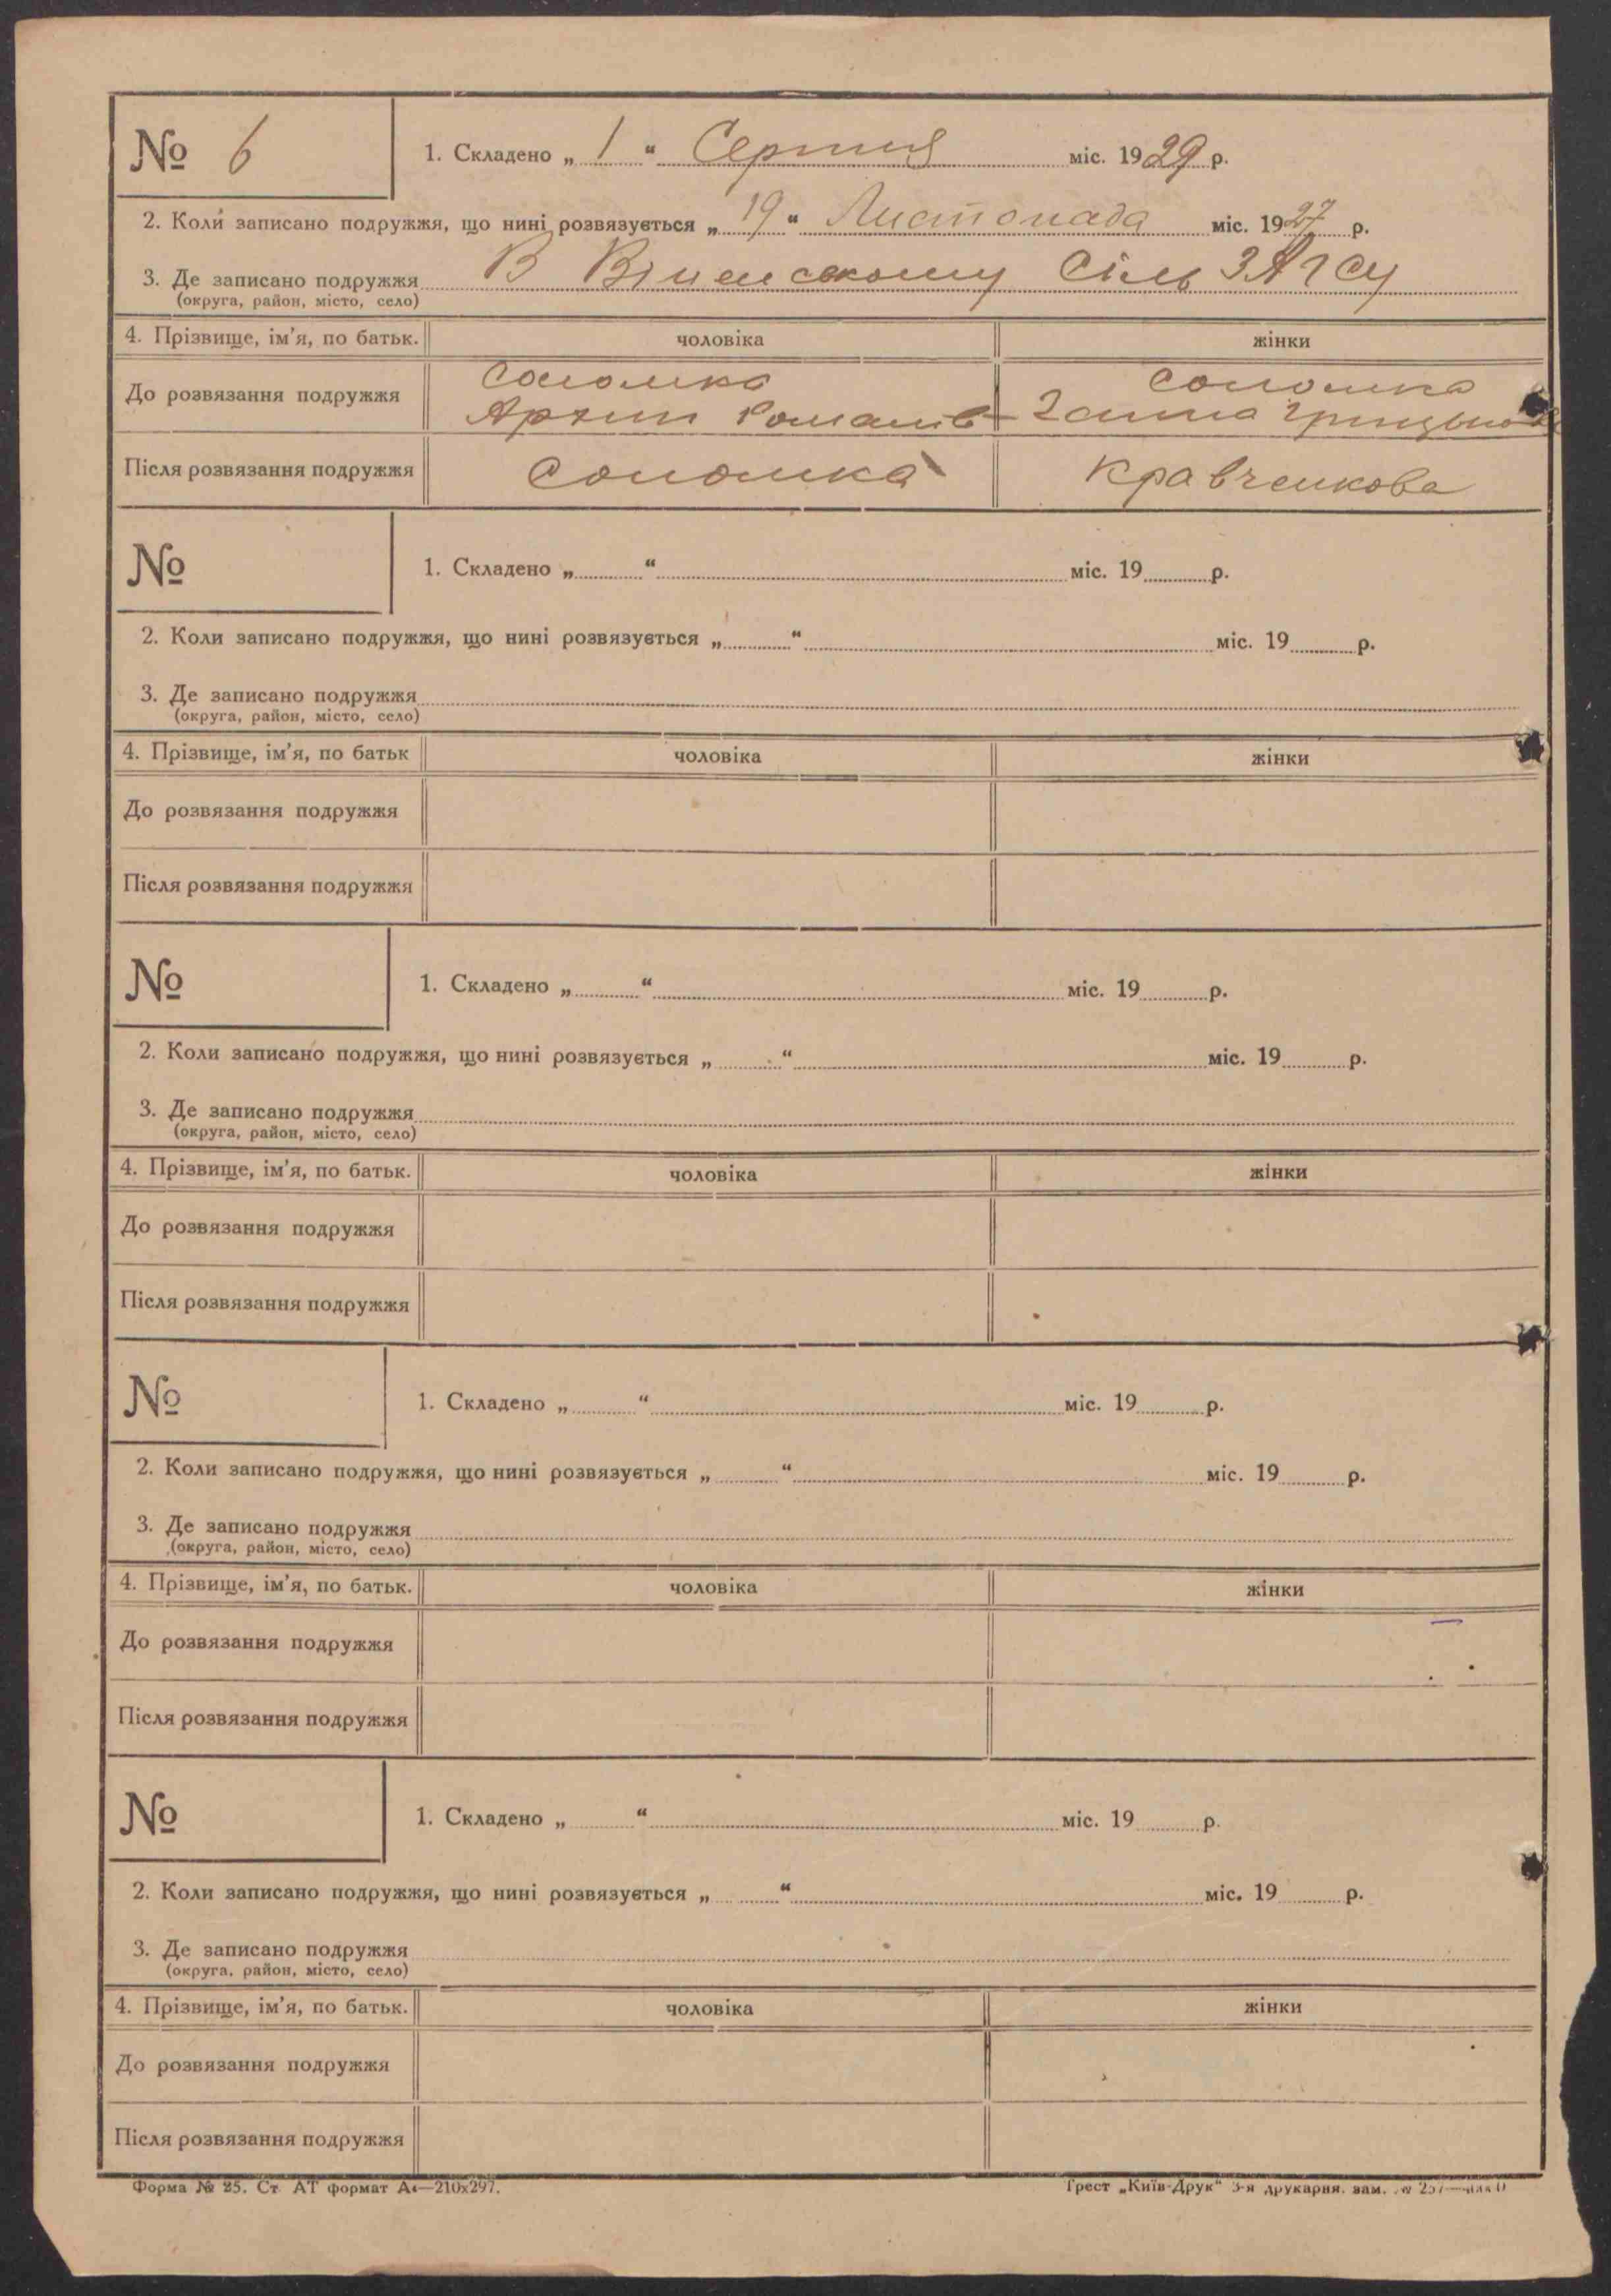 № 6
1. Складено „ 1 “ Серпня міс. 1929 р.
2. Коли записано подружжя, що нині розвязується „ 19 “ Листопада міс. 1927 р.
3. Де записано подружжя В сіль ЗАГСу
(округа, район, місто, село)
4. Прізвище, ім'я, по батьк. чоловіка жінки
До розвязання подружжя Соломка Архип Романів Соломка Ганна
Після розвязання подружжя Соломка Кравченкова
№
1. Складено „ “ міс. 19 р.
2. Коли записано подружжя, що нині розвязується „ “ міс. 19 р.
3. Де записано подружжя
(округа, район, місто, село)
4. Прізвище, ім'я, по батьк чоловіка жінки
До розвязання подружжя
Після розвязання подружжя
№
1. Складено „ “ міс. 19 р.
2. Коли записано подружжя, що нині розвязується „ “ міс. 19 р.
3. Де записано подружжя
(округа, район, місто, село)
4. Прізвище, ім'я, по батьк. чоловіка жінки
До розвязання подружжя
Після розвязання подружжя
№
1. Складено „ “ міс. 19 р.
2. Коли записано подружжя, що нині розвязується „ “ міс. 19 р.
3. Де записано подружжя
(округа, район, місто, село)
4. Прізвище, ім'я, по батьк. чоловіка жінки
До розвязання подружжя
Після розвязання подружжя
№
1. Складено „ “ міс. 19 р.
2. Коли записано подружжя, що нині розвязується „ “ міс. 19 р.
3. Де записано подружжя
(округа, район, місто, село)
4. Прізвище, ім'я, по батьк. чоловіка жінки
До розвязання подружжя
Після розвязання подружжя
Форма № 25. Ст АТ формат А4—210х297. Трест „Київ-Друк“ 3-я друкарня. зам. № 257